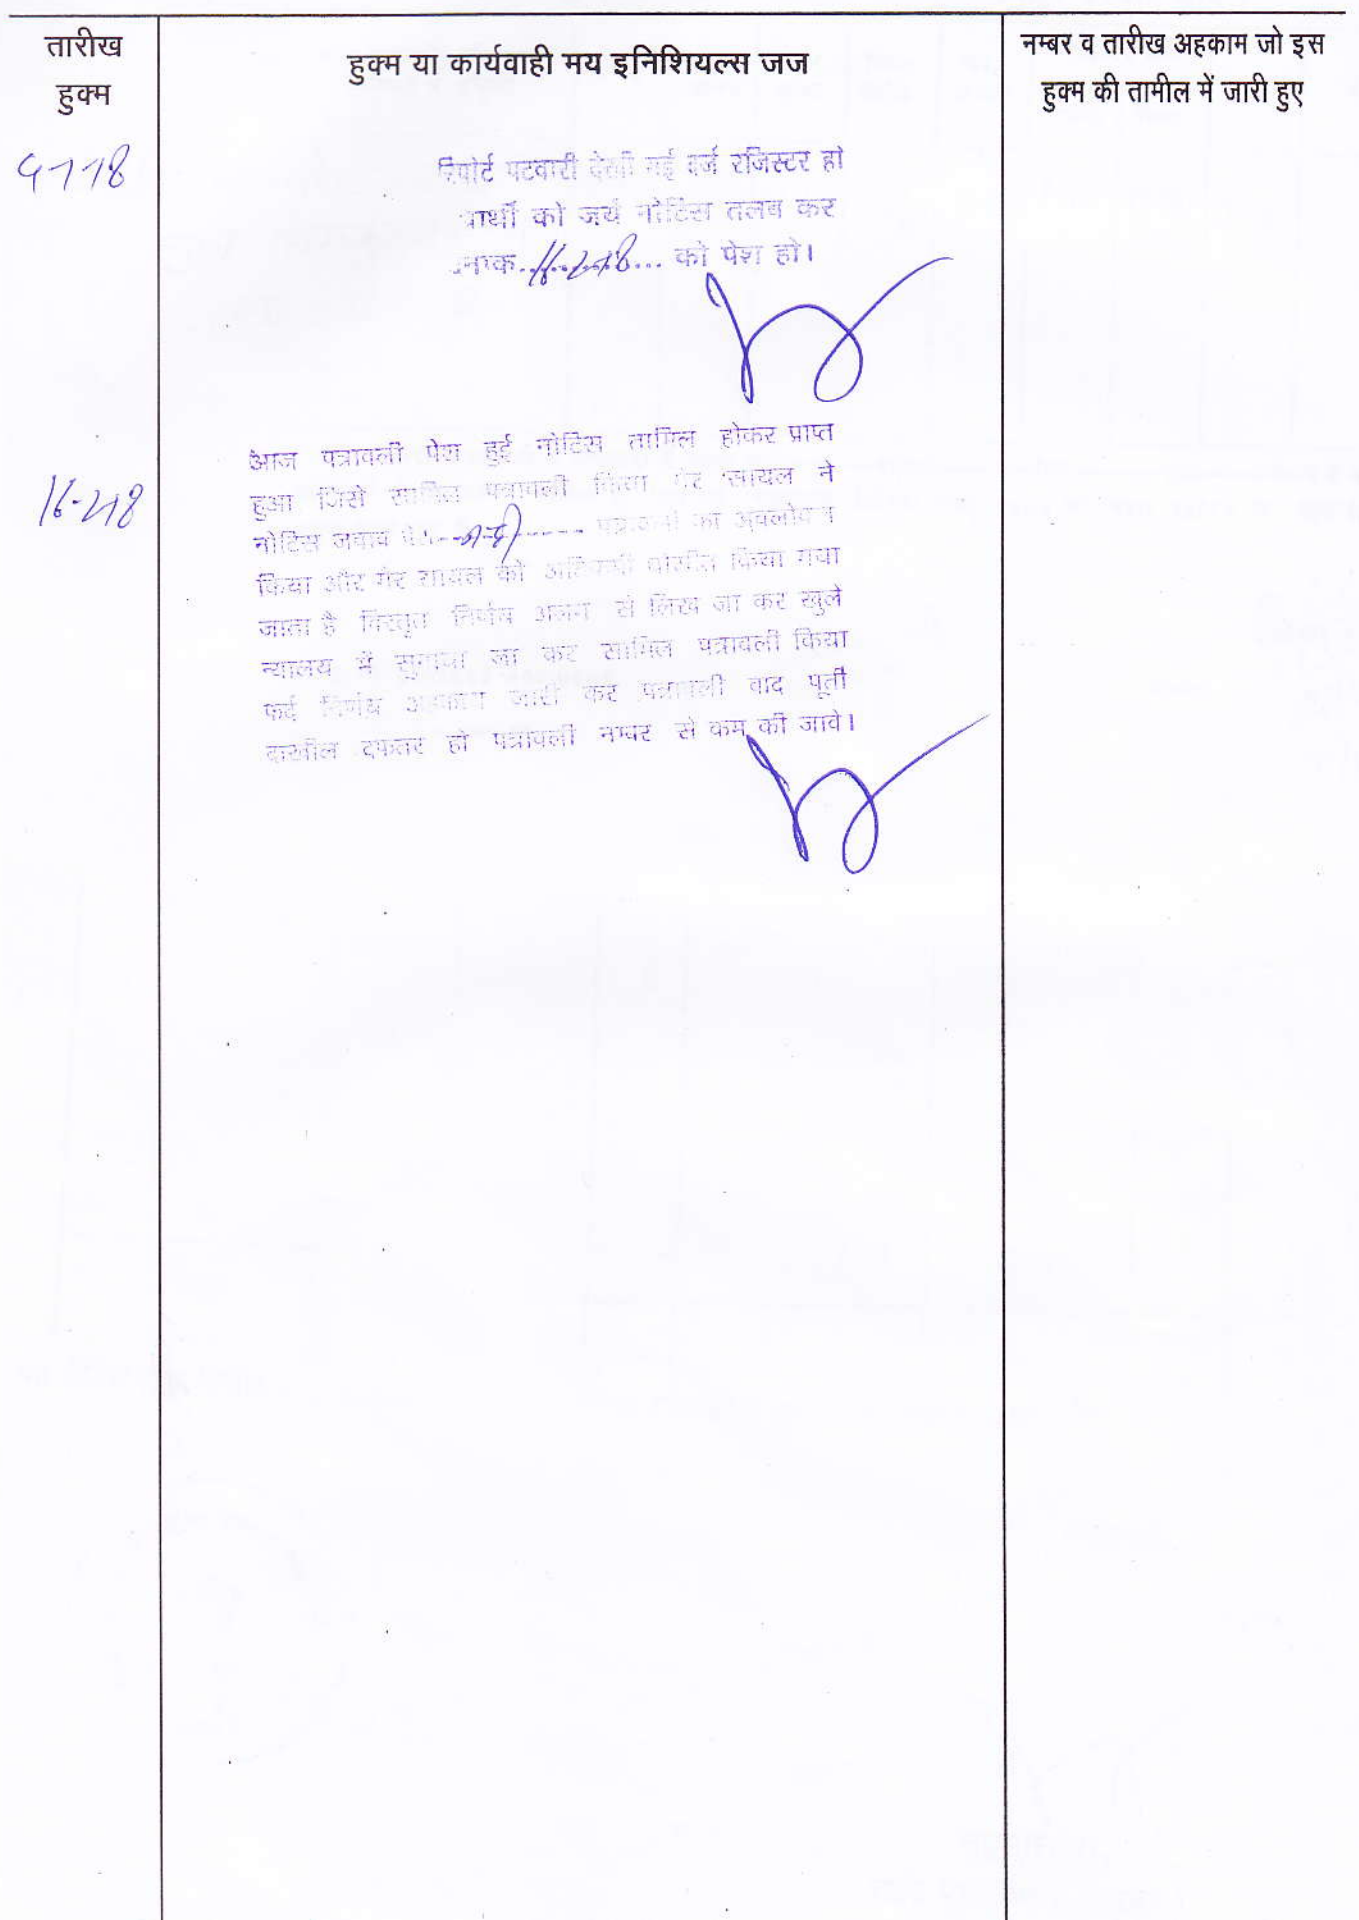 तारीख
हुक्म
हुक्म या कार्यवाही मय इनिशियल्स जज
नम्बर व तारीख अहकाम जो इस
हुक्म की तामील में जारी हुए
रिपोर्ट पटवारी देखी गई दर्ज रजिस्टर हो
प्रार्थी को जर्ये नोटिस तलब कर
को पेश हो।
आज पत्रावली पेश हुई नोटिस तामिल होकर प्राप्त
16-2-18
हुआ जिसे सामिल पत्रावली किया गैर सायल ने
नोटिस जवाब पत्रावली का अवलोकन
किया और गैर सायल को किया गया
जाता है विस्तृत निर्णय अलग से लिख जा कर खुले
न्यालय में सुनाया जा कर सामिल पत्रावली किया
फर्द निर्णय अहकाम जारी कर पत्रावली वाद पूर्ती
दाखील दफतर हो पत्रावली नम्बर से कम की जावे।